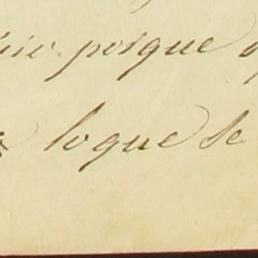 porque
logue se